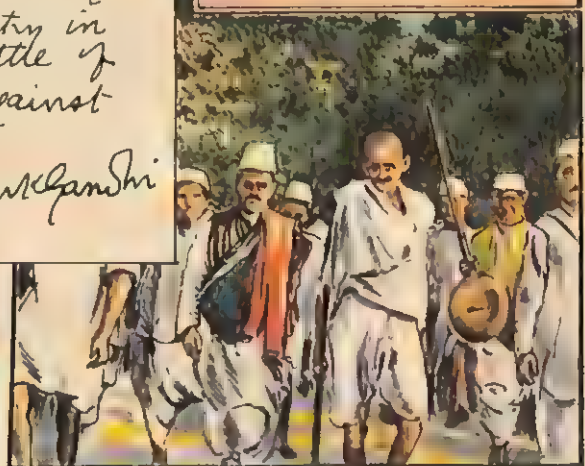 try in
ttle of
gainst
MKGandhi